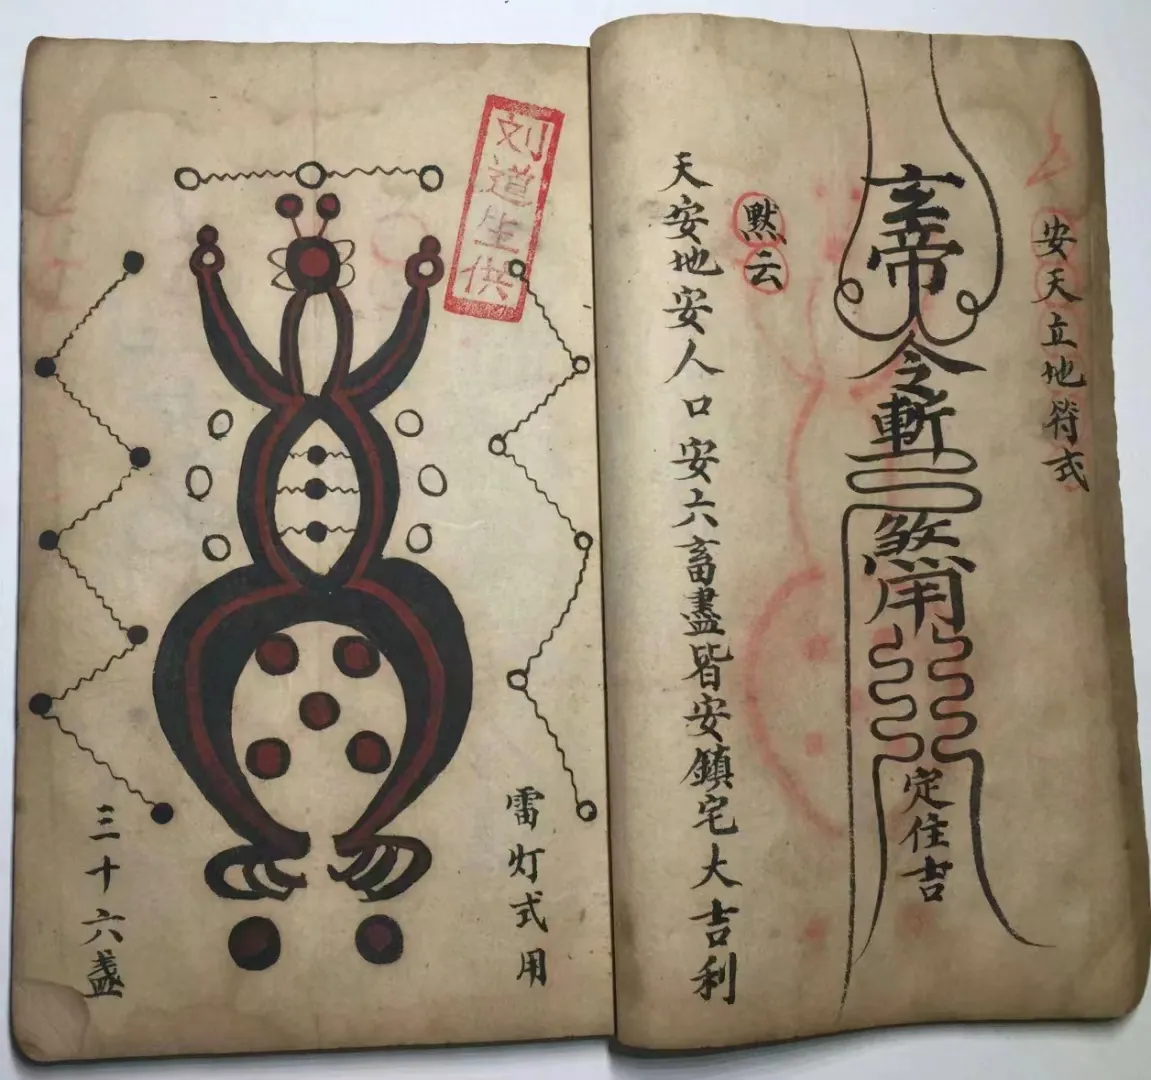 安天立地符式
玄帝
令斬
煞用
定住吉
默云
天安地安人口安六畜盡皆安鎮宅大吉利
刘道生供
雷灯式用
三十六盏